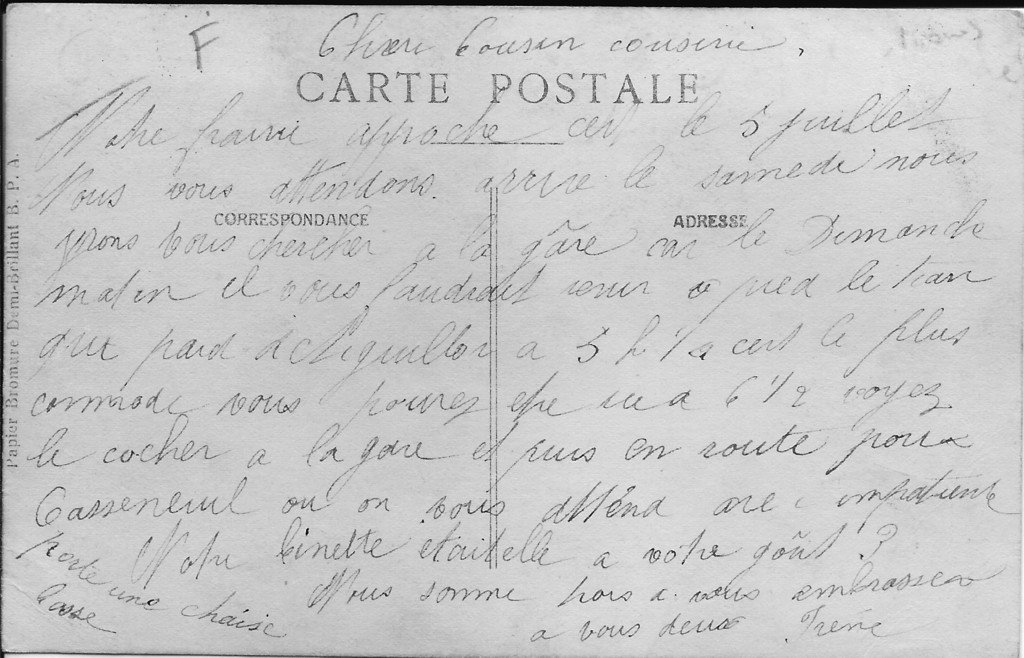 F
Cher Cousin cousine,
CARTE POSTALE
Notre frairie approche cest le 5 juillet
Nous vous attendons. arrive le samedi nous
yrons vous chercher a la gâre car le Dimanche
matin il vous faudrait venir a pied le train
que pard d'Eguillon a 5 h 1/2 cest le plus
commode vous pourez etre ici a 6 1/2 voyez
le cocher a la gare et puis en route pour
Casseneuil ou on vous attend avec impatience
Notre binette etait elle a votre goût ?
Nous somme pores a vous embrasser
a vous deux Irène
porte une chaise
basse
CORRESPONDANCE
ADRESSE
Papier Bromure Demi-Brillant B. P. A.